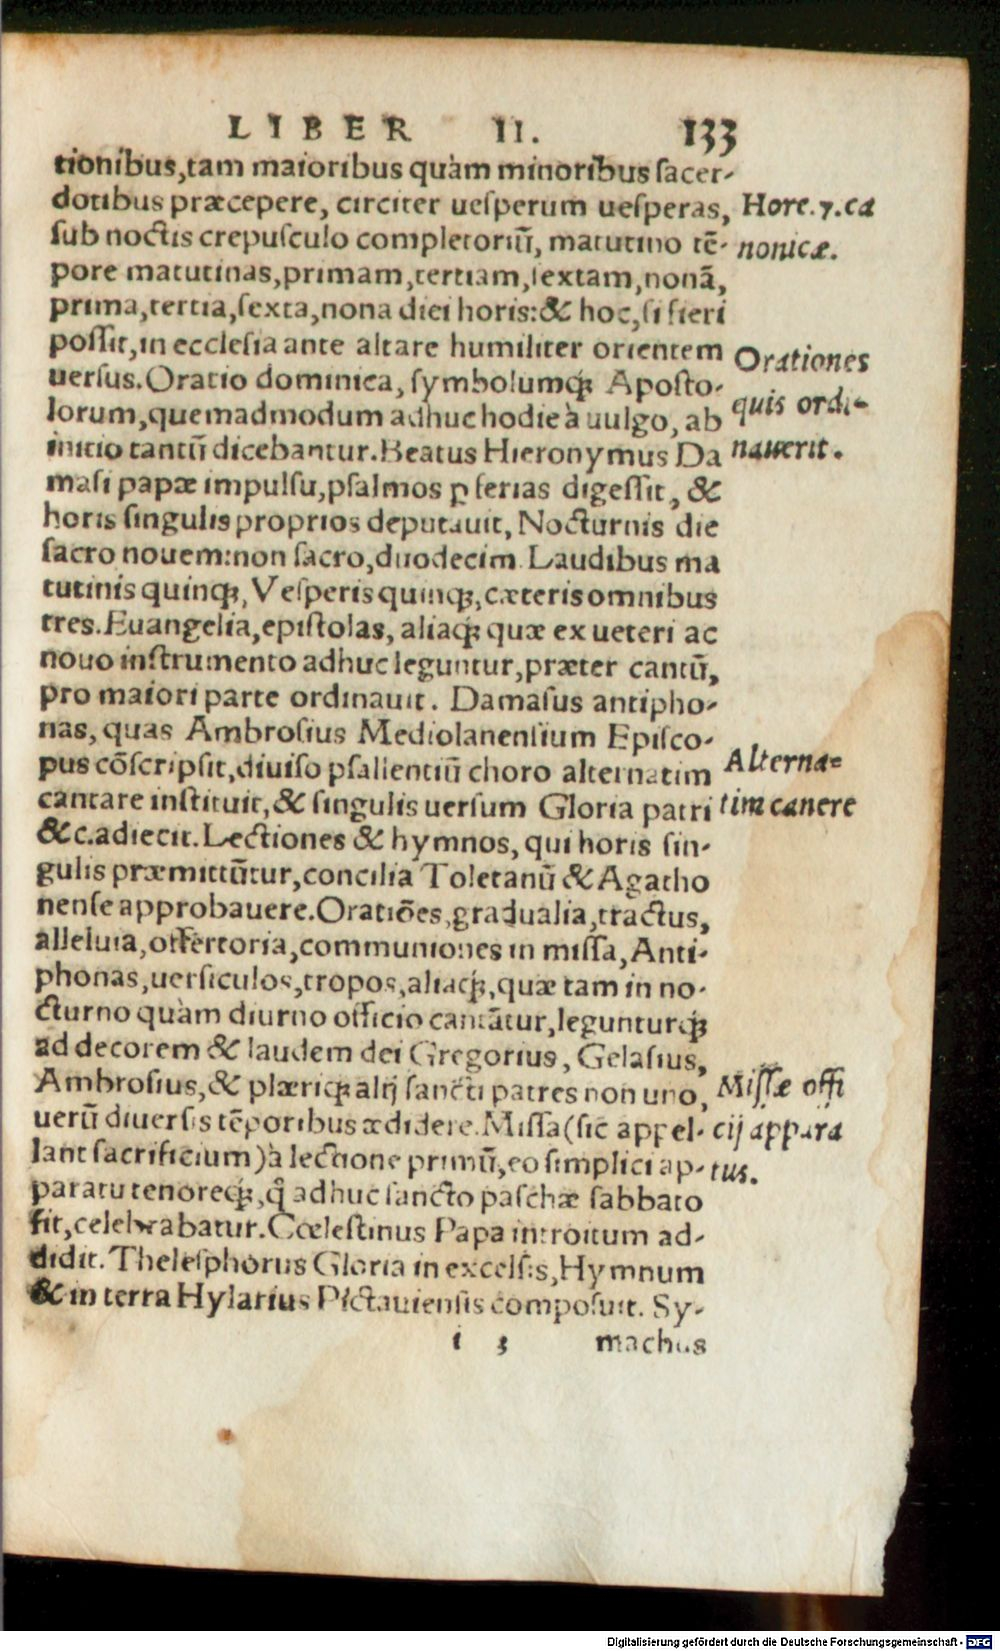 LIBER II. 133
tionibus, tam maioribus quàm minoribus sacer-
dotibus præcepere, circiter uesperum uesperas,
sub noctis crepusculo completoriũ, matutino tẽ-
pore matutinas, primam, tertiam, sextam, nonã,
prima, tertia, sexta, nona diei horis: & hoc, si fieri
possit, in ecclesia ante altare humiliter orientem
uersus. Oratio dominica, symbolumq́; Aposto-
lorum, quemadmodum adhuc hodie à uulgo, ab
initio tantũ dicebantur. Beatus Hieronymus Da
masi papæ impulsu, psalmos ꝑ ferias digessit, &
horis singulis proprios deputauit, Nocturnis die
sacro nouem: non sacro, duodecim. Laudibus ma
tutinis quinq;, Vesperis quinq;, cæteris omnibus
tres. Euangelia, epistolas, aliaq́; quæ ex ueteri ac
nouo instrumento adhuc leguntur, præter cantũ,
pro maiori parte ordinauit. Damasus antipho-
nas, quas Ambrosius Mediolanensium Episco-
pus cõscripsit, diuiso psallentiũ choro alternatim
cantare instituit, & singulis uersum Gloria patri
&c. adiecit. Lectiones & hymnos, qui horis sin-
gulis præmittũtur, concilia Toletanũ & Agatho
nense approbauere. Oratiões, gradualia, tractus,
alleluia, offertoria, communiones in missa, Anti-
phonas, uersiculos, tropos, aliaq́;, quæ tam in no-
cturno quàm diurno officio cantãtur, legunturq́;
ad decorem & laudem dei Gregorius, Gelasius,
Ambrosius, & plæriq; alij sancti patres non uno,
uerũ diuersis tẽporibus ædidere. Missa (sic appel-
lant sacrificium) à lectione primũ, eo simplici ap-
paratu tenoreq́;, q̃ adhuc sancto paschæ sabbato
fit, celebrabatur. Cœlestinus Papa introitum ad-
didit. Thelesphorus Gloria in excelsis, Hymnum
& in terra Hylarius Pictauiensis composuit. Sy-
i 3 machus
Horæ. 7. ca
nonicæ.
Orationes
quis ordi-
nauerit.
Alterna-
tim canere
Missæ offi
cij appara
tus.
Digitalisierung gefördert durch die Deutsche Forschungsgemeinschaft - DFG